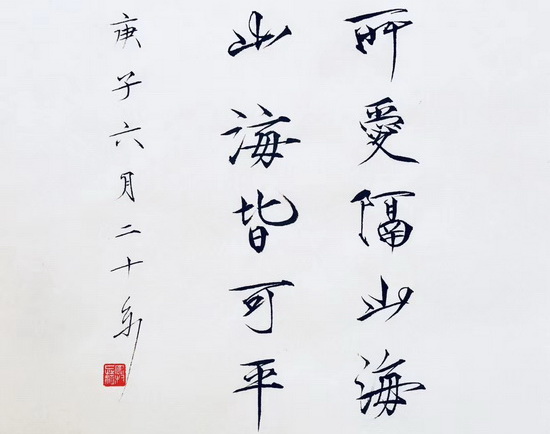 所愛隔山海
山海皆可平
庚子六月二十